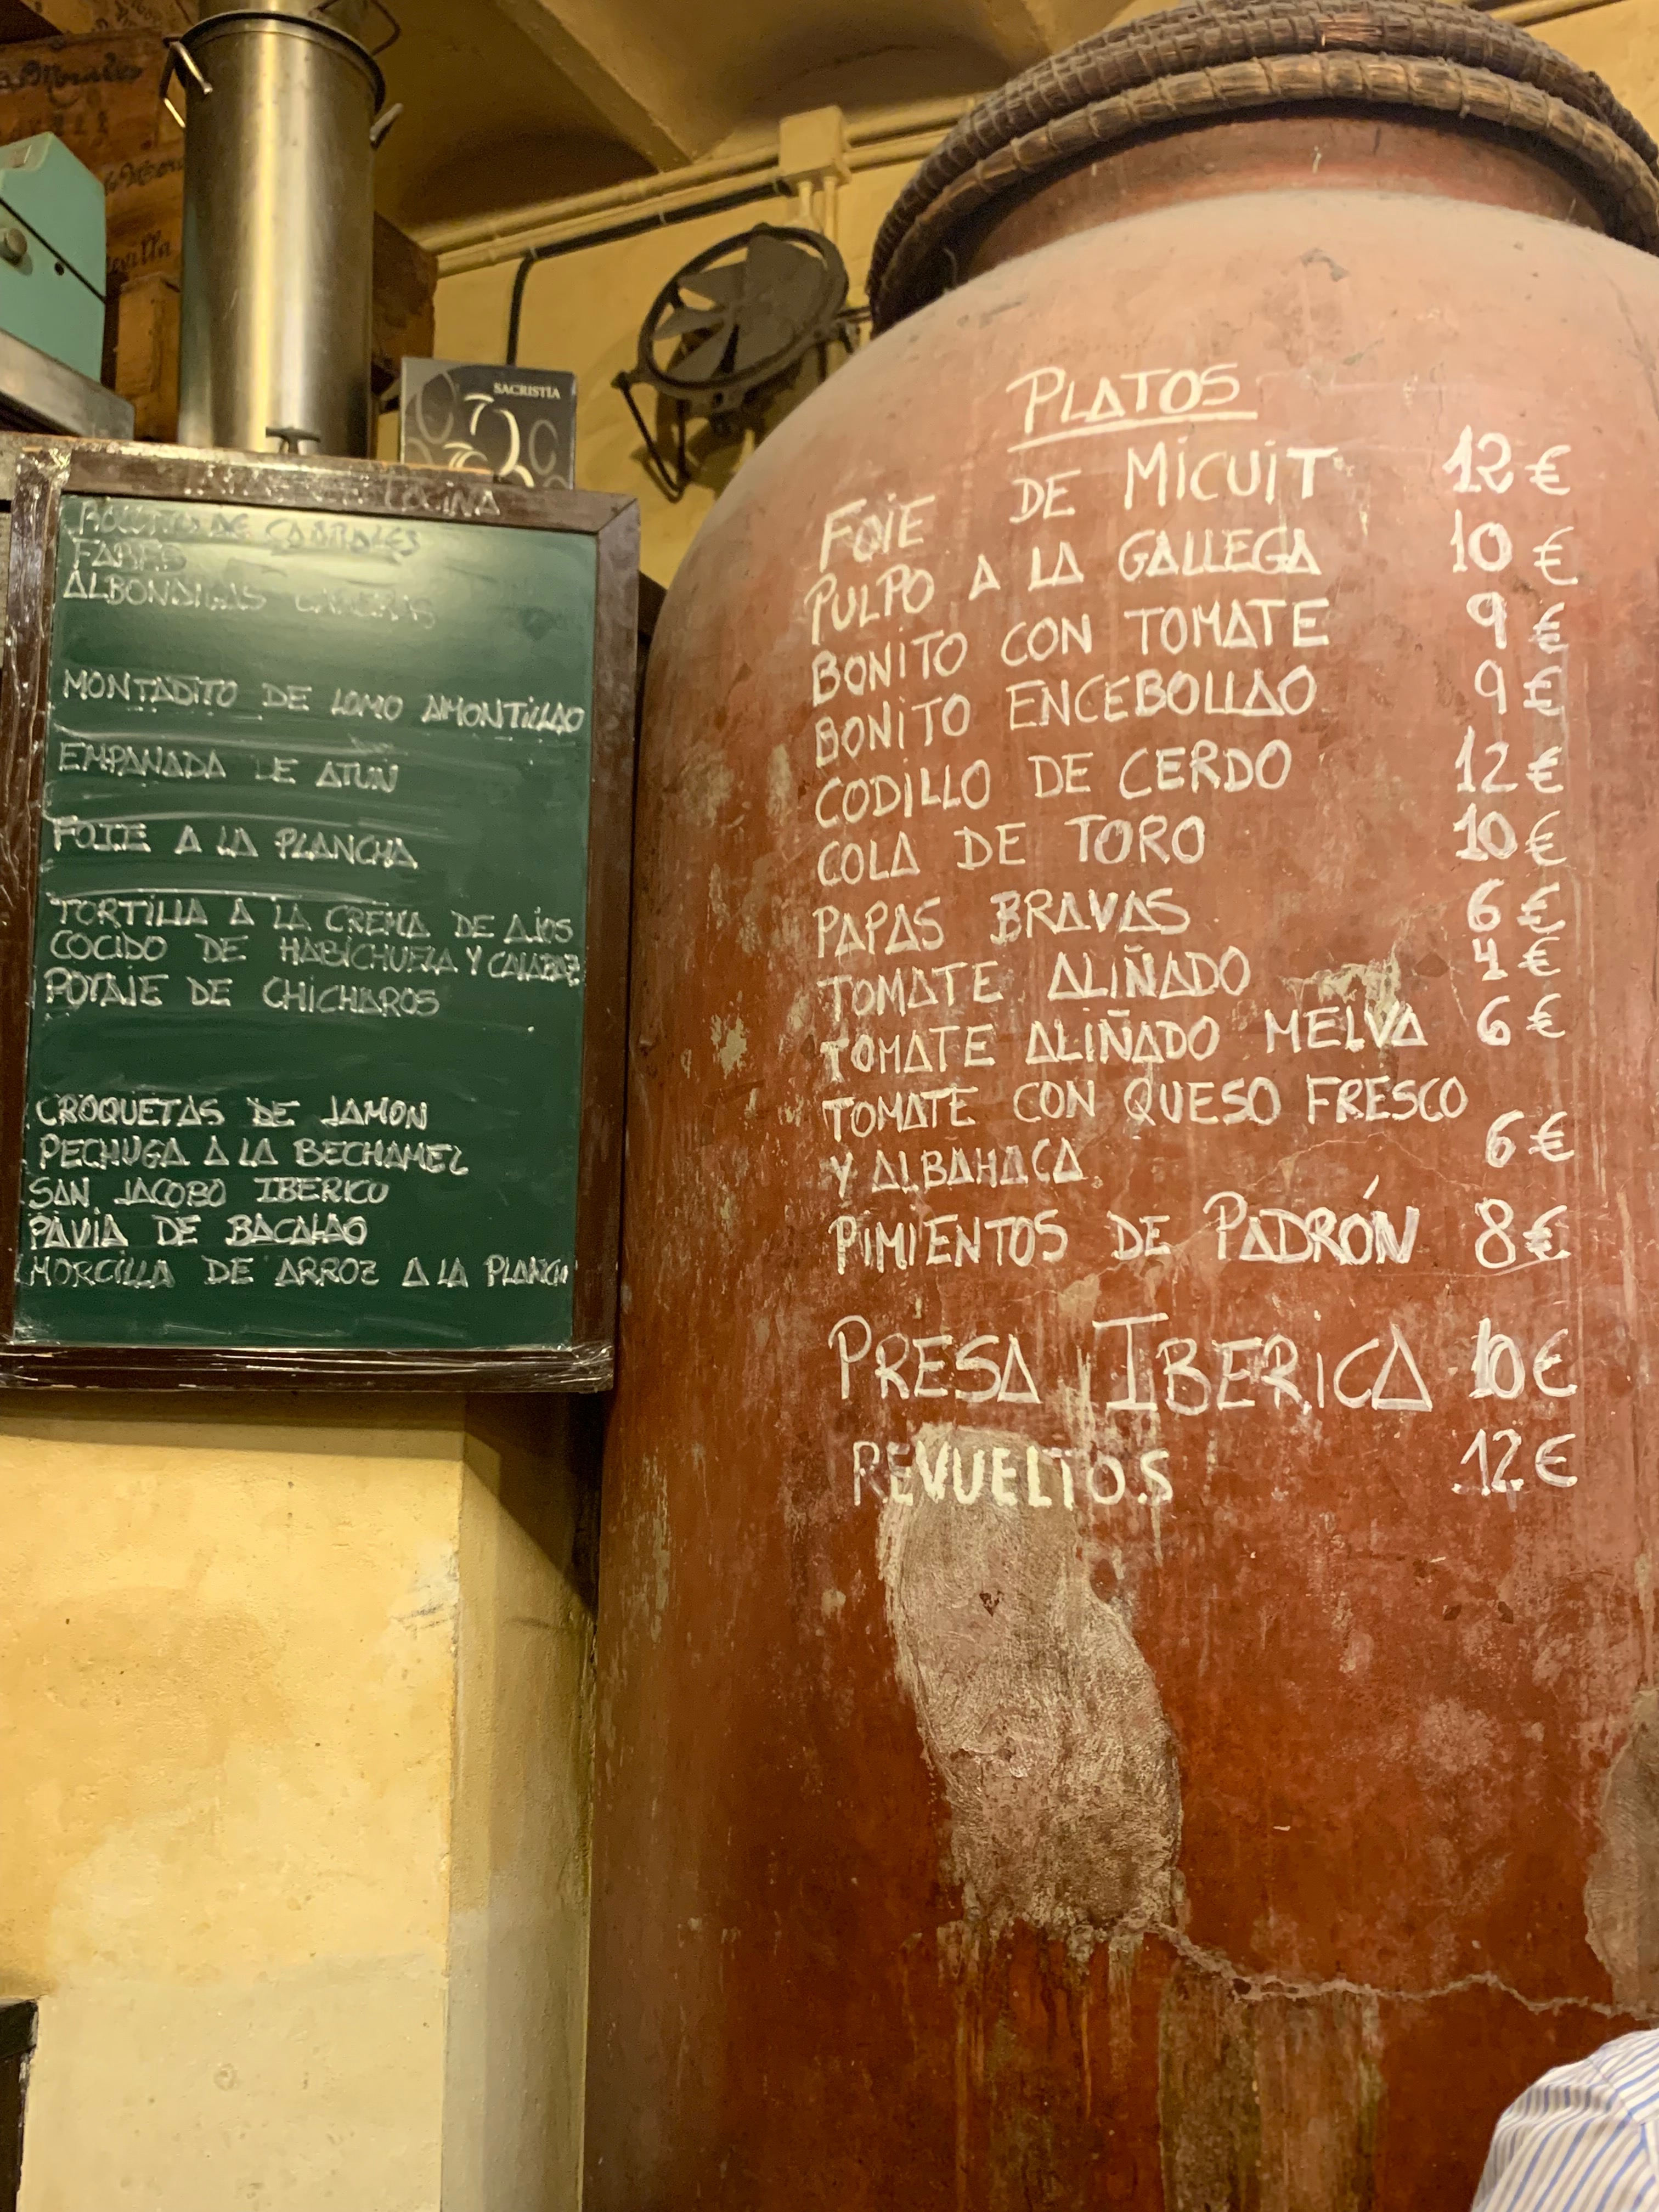 Morales
Sevilla
SACRISTÍA
COCINA
DE CABRALES
FABES
ALBONDIGAS CASERAS
MONTADITO DE LOMO AMONTILLAO
EMPANADA DE ATUN
FOIE A LA PLANCHA
TORTILLA A LA CREMA DE AJOS
COCIDO DE HABICHUELA Y CALABAZ
POTAJE DE CHICHAROS
CROQUETAS DE JAMON
PECHUGA A LA BECHAMEL
SAN JACOBO IBERICO
PAVIA DE BACALAO
MORCILLA DE ARROZ A LA PLANCH
PLATOS
FOIE DE MICUIT 12 €
PULPO A LA GALLEGA 10 €
BONITO CON TOMATE 9 €
BONITO ENCEBOLLAO 9 €
CODILLO DE CERDO 12 €
COLA DE TORO 10 €
PAPAS BRAVAS 6 €
TOMATE ALIÑADO 4 €
TOMATE ALIÑADO MELVA 6 €
TOMATE CON QUESO FRESCO
Y ALBAHACA. 6 €
PIMIENTOS DE PADRÓN 8 €
PRESA IBERICA 10 €
REVUELTOS 12 €